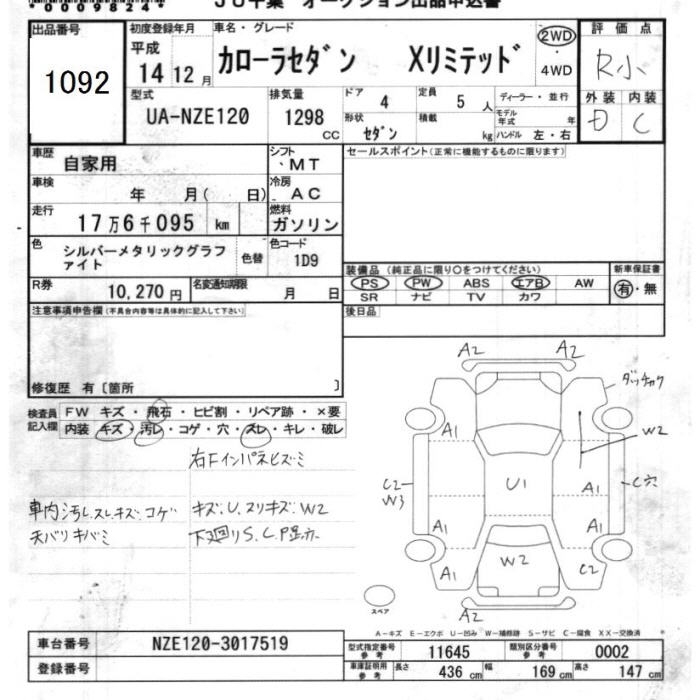 *0009824*
JU千葉 オークション出品申込書
出品番号
1092
初度登録年月
平成
14 12月
車名・グレード
カローラセダン Xリミテッド
2WD
・
4WD
評価点
R小
外装 内装
D C
型式
UA-NZE120
排気量
1298
CC
ドア 4
定員 5 人
形状 セダン
積載 kg
ディーラー・並行
モデル年式 年
ハンドル 左・右
車歴 自家用
シフト ・MT
車検 年 月( 日)
冷房 AC
走行 17万6千095 km
燃料 ガソリン
色 シルバーメタリックグラファイト
色替
色コード 1D9
R券 10,270円
名変通知期限 月 日
セールスポイント(正常に機能するものに限ります)
装備品(純正品に限り○をつけてください)
新車保証書
PS PW ABS エアB AW
有・無
SR ナビ TV カワ
後日品
注意事項申告欄(不具合内容等は具体的に記入して下さい)
修復歴 有〔箇所 〕
検査員記入欄
FW キズ・飛石・ヒビ割・リペア跡・×要
内装 キズ・汚レ・コゲ・穴・スレ・キレ・破レ
右Fインパネヒズミ
車内汚レ.スレ.キズ.コゲ キズ.U.スリキズ.W2
天バリキバミ 下廻りS.C.P
A2 A2
ダッチカク
A1
W2
C2
W3
U1
A1
C穴
A1 A1
W2
A1 C2
A2
スペア
A-キズ E-エクボ U-凹み W-補修跡 S-サビ C-腐食 XX-交換済
車台番号 NZE120-3017519
登録番号
型式指定番号 参考 11645
類別区分番号 参考 0002
車庫証明用 参考 長さ 436 cm 幅 169 cm 高さ 147 cm